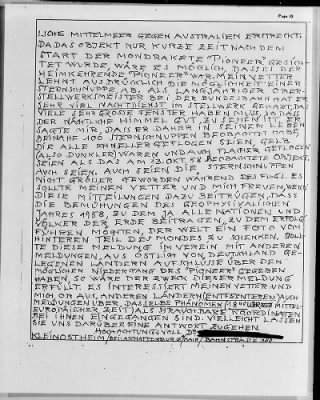 Page 10
LICHE MITTELMEER GEGEN AUSTRALIEN ERSTRECKT.
DA DAS OBJEKT NUR KURZE ZEIT NACH DEM
START DER MONDRAKETE "PIONEER" GESICH-
TET WURDE, WÄRE ES MÖGLICH, DASS EI DER
HEIMKEHRENDE "PIONEER" WAR. MEIN VETTER
LEHNT AUSDRÜCKLICH DIE MÖGLICHKEIT EINER
STERNSCHNUPPE AB. ALS LANGJÄHRIGER OBER-
STELLWERKSMEISTER BEI DER BUNDESBAHN HAT ER
SEHR VIEL NACHTDIENST IM STELLWERK GEHABT, DAS
VIELE SEHR GROSSE FENSTER HABEN MUSS, SO DASS
DER NÄCHTLICHE HIMMEL GUT ZU SEHEN IST. ER
SAGTE MIR, DASS ER DAHER IN SEINEM LEBEN
BEINAHE 100 STERNSCHNUPPEN BEOBACHTET HABE,
DIE ALLE SCHNELLER GEFLOGEN SEIEN, GELB
(ALSO DUNKLER) WAREN UND AUCH FLACHER GEFLOGEN
SEIEN ALS DAS AM 13. OKT. 58 BEOBACHTETE OBJEKT.
AUCH SEIEN DIE STERNSCHNUPPEN
NICHT GRÖSSER GEWORDEN WÄHREND DES FLUGS. ES
SOLLTE MEINEN VETTER UND MICH FREUEN, WENN
DIESE MITTEILUNGEN DAZU BEITRÜGEN, DASS
DIE BEMÜHUNGEN DES GEOPHYSIKALISCHEN
JAHRES 1958, ZU DEM JA ALLE NATIONEN UND
VÖLKER DER ERDE BEITRAGEN, ZU DEM ERFOLG
FÜHREN MÖGTEN, DER WELT EIN FOTO VOM
HINTEREN TEIL DES MONDES ZU SCHENKEN. SOLL-
TE DIESE MELDUNG IM VEREIN MIT ANDEREN
MELDUNGEN AUS ÖSTLICH VON DEUTSCHLAND GE-
LEGENEN LÄNDERN AUFSCHLUSS ÜBER DEN
MÖGLICHEN NIEDERGANG DES "PIONEER" GEGEBEN
HABEN, SO WÄRE DER ZWECK DIESER MELDUNG
ERFÜLLT. ES INTERESSIERT MEINEN VETTER UND
MICH, OB AUS ANDEREN LÄNDERN (ENTFERNTEREN) AUCH
MELDUNGEN ÜBER DASSELBE PHÄNOMEN MITTEL-
EUROPÄISCHER ZEIT) ALS BRAUCHBARE KOORDINATEN
BEI IHNEN EINGEGANGEN SIND. VIELLEICHT LASSEN
SIE UNS DARÜBER EINE ANTWORT ZUGEHEN.
HOCHACHTUNGSVOLL
KLEINOSTHEIM/ BAHNSTRASSE